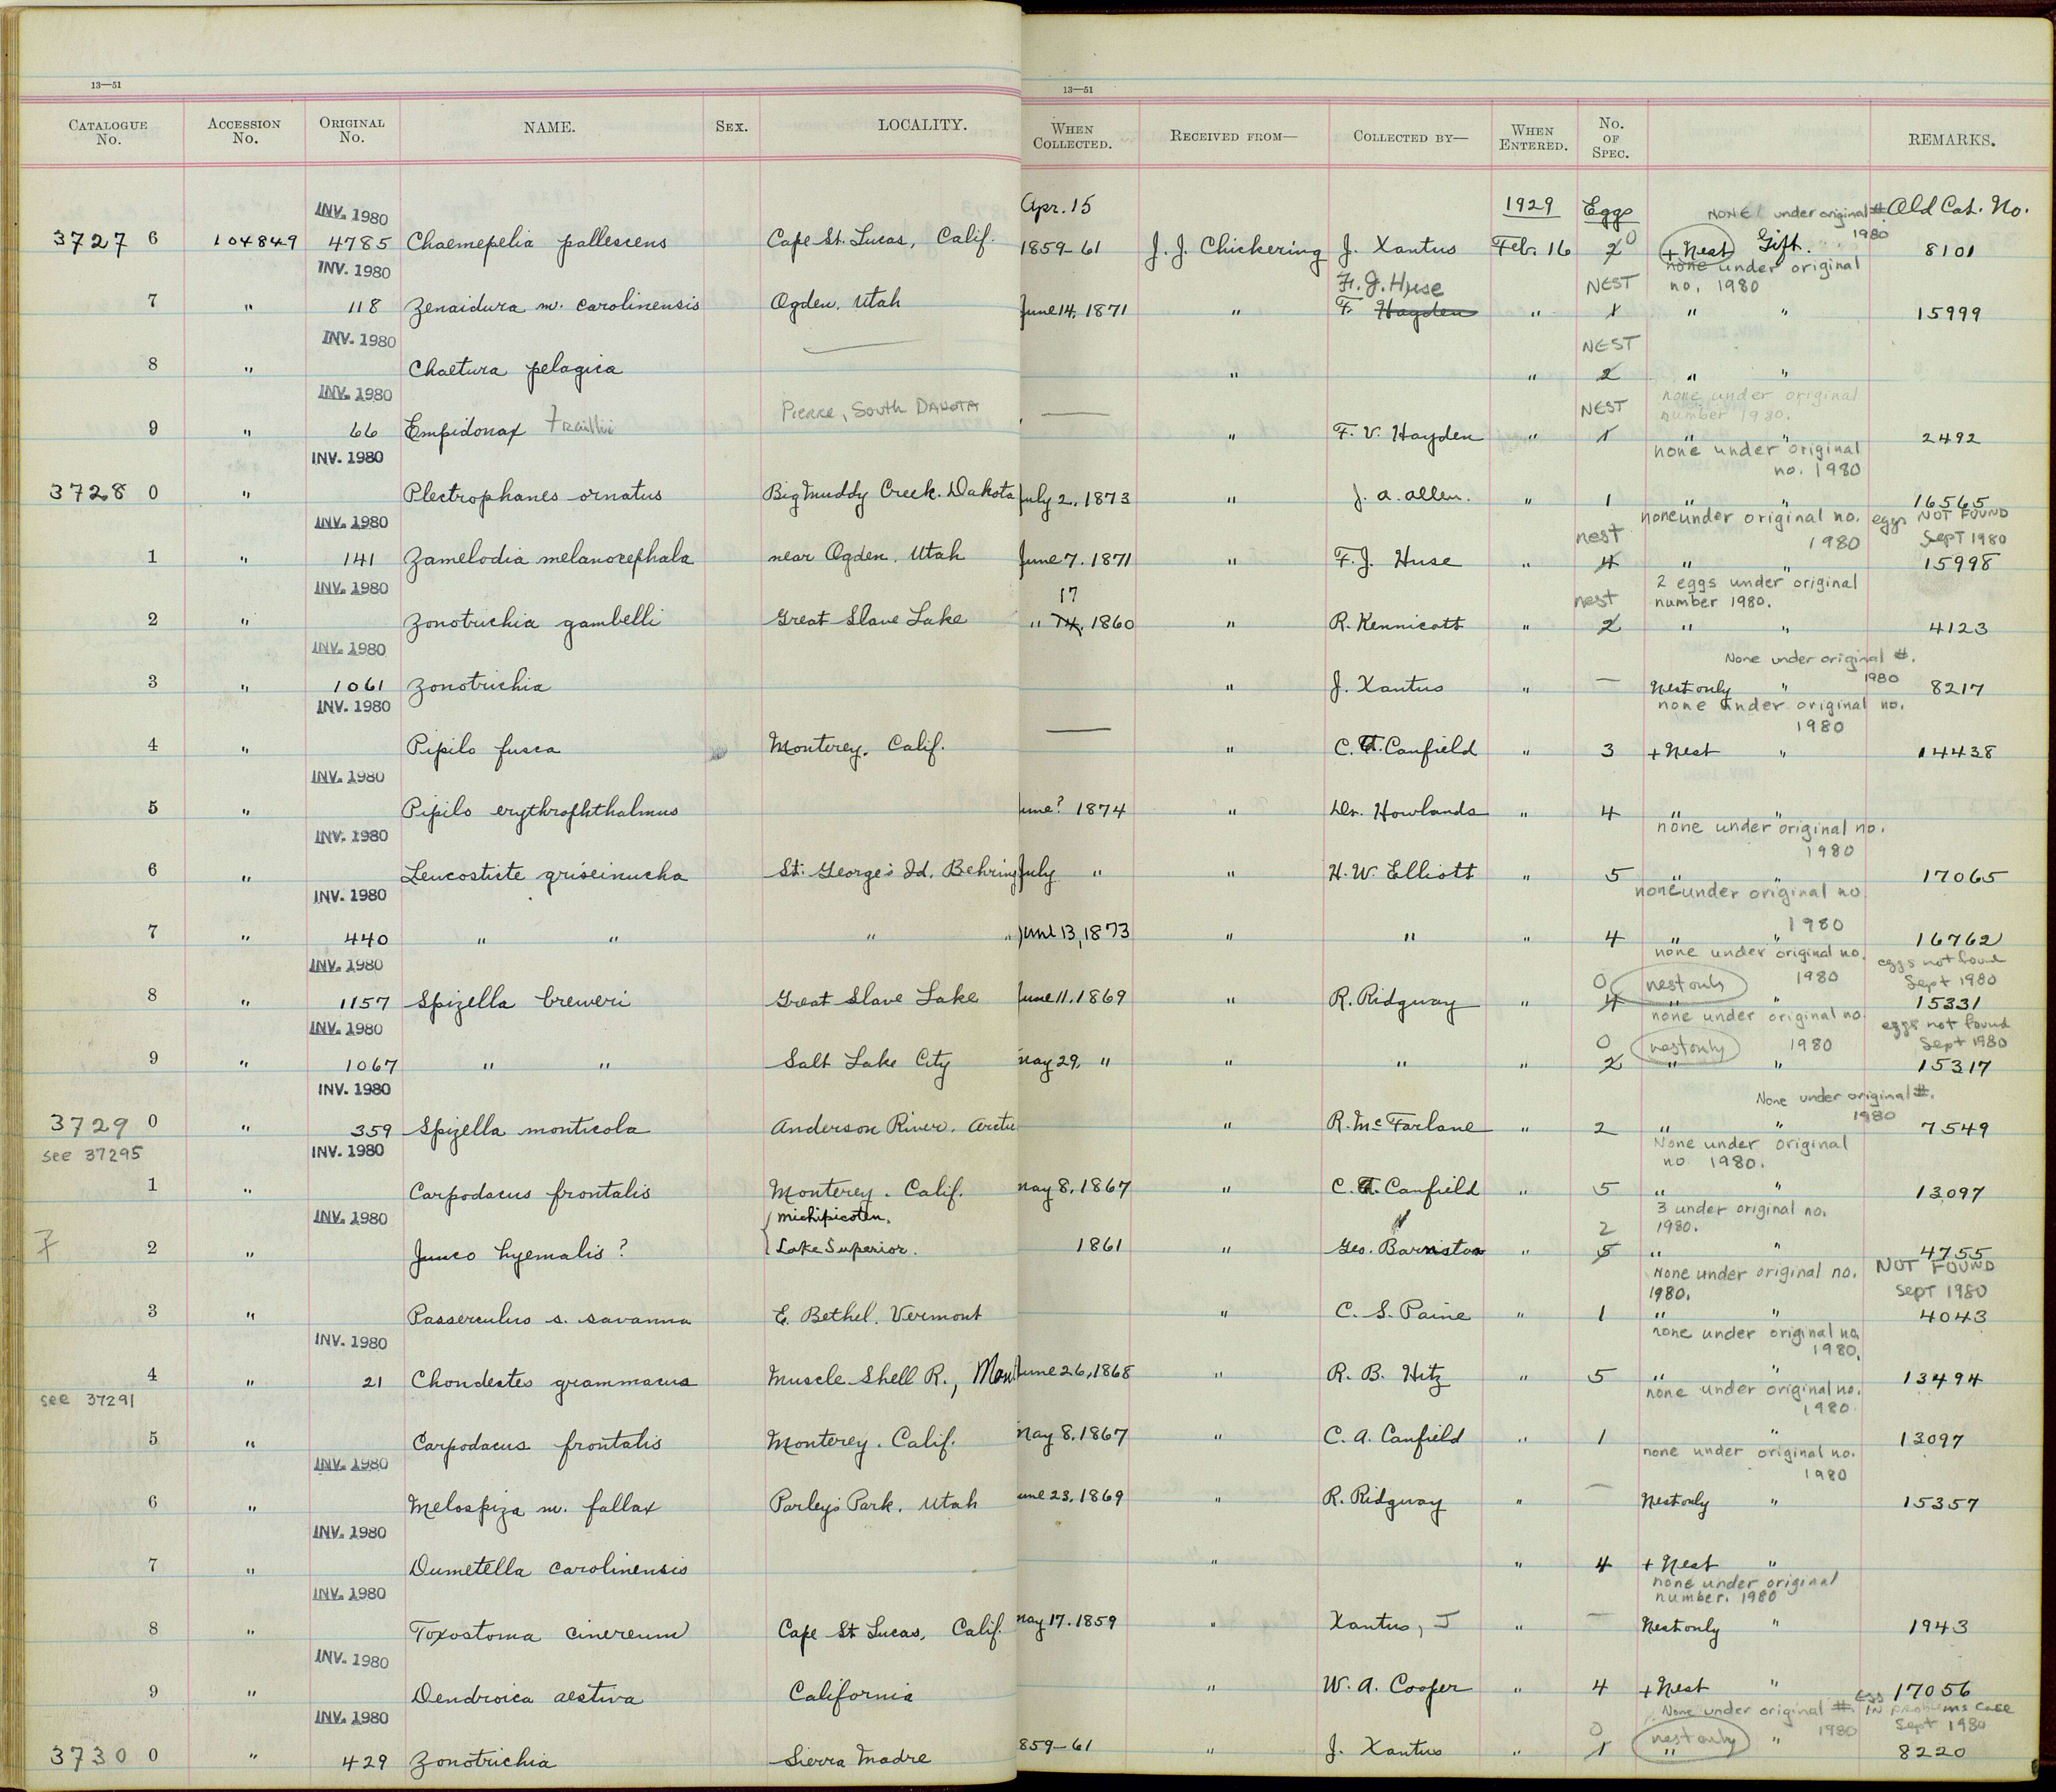 13—51
13—51
CATALOGUE No. ACCESSION No. ORIGINAL No. NAME. SEX. LOCALITY. WHEN COLLECTED. RECEIVED FROM— COLLECTED BY— WHEN ENTERED. No. OF SPEC. REMARKS.
INV. 1980 Apr. 15 1929 Eggs NONE under original #. Old Cat. No.
1980
3727 6 104849 4785 Chaemepelia pallescens Cape St. Lucas, Calif. 1859-61 J. J. Chickering J. Xantus Feb. 16 2 0 + Nest Gift. 8101
INV. 1980 F. J. Huse NEST none under original no. 1980
7 " 118 Zenaidura m. carolinensis Ogden, Utah June 14, 1871 " F. Hayden " 1 " " 15999
INV. 1980 NEST
8 " Chaetura pelagica " " 2 " "
INV. 1980 Pierre, South Dakota — NEST none under original number 1980.
9 " 66 Empidonax Traillii " F. V. Hayden " 1 " " 2492
INV. 1980 none under original no. 1980
3728 0 " Plectrophanes ornatus Big Muddy Creek. Dakota July 2, 1873 " J. A. Allen. " 1 " " 16565
INV. 1980 nest none under original no. 1980 eggs NOT FOUND Sept 1980
1 " 141 Zamelodia melanocephala near Ogden, Utah June 7. 1871 " F. J. Huse " 4 " " 15998
INV. 1980 17 nest 2 eggs under original number 1980.
2 " Zonotrichia gambelli Great Slave Lake " 14, 1860 " R. Kennicott " 2 " " 4123
INV. 1980 None under original #. 1980
3 " 1061 Zonotrichia " J. Xantus " — Nest only " 8217
INV. 1980 none under original no. 1980
4 " Pipilo fusca Monterey. Calif. — " C. A. Canfield " 3 + Nest " 14438
INV. 1980
5 " Pipilo erythrophthalmus June? 1874 " Dr. Howlands " 4 " "
INV. 1980 none under original no. 1980
6 " Leucosticte griseinucha St. George's Id. Behring July " " H. W. Elliott " 5 " " 17065
INV. 1980 none under original no. 1980
7 " 440 " " " " June 13, 1873 " " " 4 " " 16762
INV. 1980 0 nest only none under original no. 1980 eggs not found Sept 1980
8 " 1157 Spizella breweri Great Slave Lake June 11. 1869 " R. Ridgway " 4 " " 15331
INV. 1980 0 nest only none under original no. 1980 eggs not found Sept 1980
9 " 1067 " " Salt Lake City May 29, " " " " 2 " " 15317
INV. 1980 None under original #. 1980
3729 0 " 359 Spizella monticola Anderson River. Arctic " R. McFarlane " 2 " " 7549
see 37295 INV. 1980 None under original no. 1980.
1 " Carpodacus frontalis Monterey. Calif. May 8, 1867 " C. A. Canfield " 5 " " 13097
INV. 1980 Michipicoten, 2 3 under original no. 1980.
7 2 " Junco hyemalis? Lake Superior. 1861 " Geo. Barnston " 5 " " 4755
None under original no. 1980. NOT FOUND Sept 1980
3 " Passerculus s. savanna E. Bethel. Vermont " C. S. Paine " 1 " " 4043
INV. 1980 none under original no. 1980.
4 " 21 Chondestes grammacus Muscle Shell R., Mon June 26, 1868 " R. B. Hitz " 5 " " 13494
see 37291 none under original no. 1980
5 " Carpodacus frontalis Monterey. Calif. May 8, 1867 " C. A. Canfield " 1 " 13097
INV. 1980 none under original no. 1980
6 " Melospiza m. fallax Parley's Park. Utah June 23, 1869 " R. Ridgway " — Nest only " 15357
INV. 1980
7 " Dumetella carolinensis " " 4 + Nest "
INV. 1980 none under original number. 1980
8 " Toxostoma cinereum Cape St Lucas, Calif. May 17. 1859 " Xantus, J " — Nest only " 1943
INV. 1980
9 " Dendroica aestiva California " W. A. Cooper " 4 + Nest " 17056
INV. 1980 0 nest only None under original #. 1980 Egg IN problems case Sept 1980
3730 0 " 429 Zonotrichia Sierra Madre 859-61 " J. Xantus " 1 " " 8220